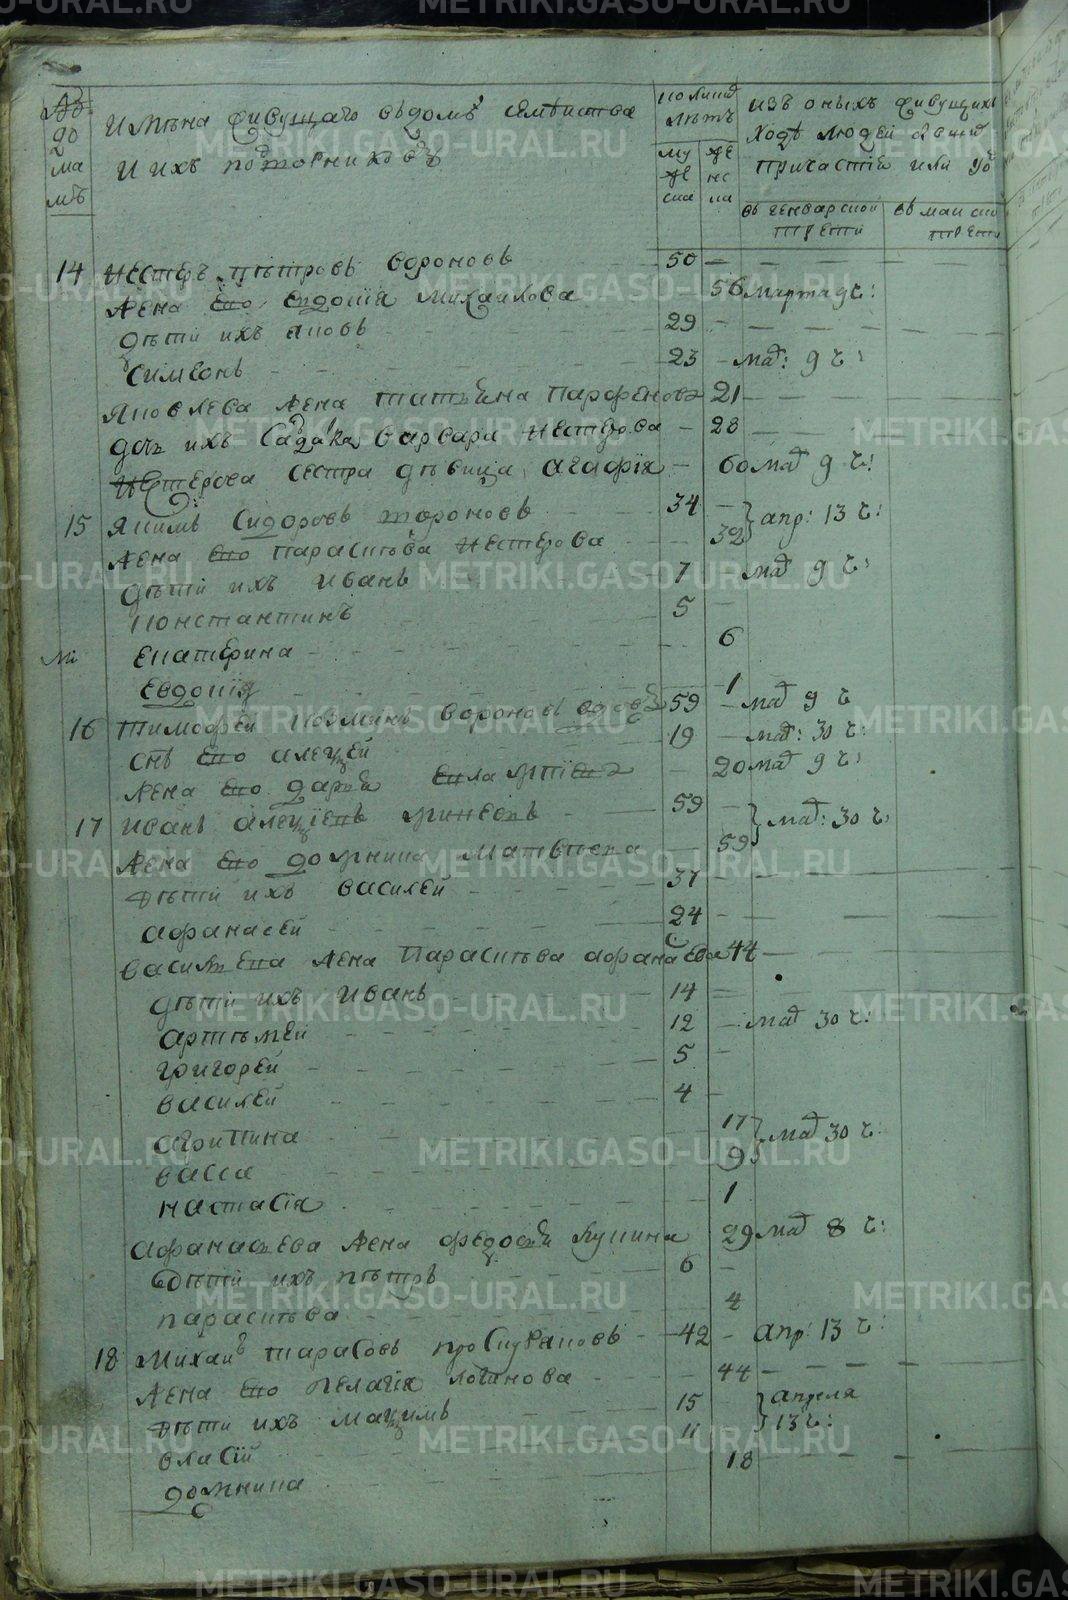 до
ма
мъ
имѣна живущаго въ домѣ семѣиства
и их потомниковъ
лѣтъ
му
же
ска
же
нс
ка
изъ оныхъ живущихъ
людей
причастій или
въ генварской
трети
въ маиской
трети
14 нестеръ пѣтровъ вороновъ 50
жена ево евдокія михаилова 56 марта 9 ч:
дѣти ихъ яковъ 29
симеонъ 23 мар: 9 ч:
яковлева жена татьяна парфенова 21
дочь ихъ варвара нестерова 28
нестерова сестра дѣвица агафія 60 мар 9 ч:
15 якимъ сидоровъ вороновъ 34
апр: 13 ч:
жена ево параскѣва нестерова 32
дѣти ихъ иванъ 7 мар 9 ч:
константинъ 5
екатерина 6
евдокія 1
16 тимофей козминъ вороновъ вдовъ 59 мар 9 ч
снъ ево алеѯей 19 мар: 30 ч:
жена ево дарья 20 мар 9 ч:
17 иванъ алеѯіевъ 59
мар: 30 ч:
жена ево домника матвѣева 59
дѣти ихъ василей 37
афанасей 24
василева жена параскѣва афанасева 44
дѣти ихъ иванъ 14
артѣмей 12 мар 30 ч:
григорей 5
василей 4
агрипина 17
мар 30 ч:
васса 9
настасія 1
афанасьева жена федосья 29 мар 8 ч:
дѣти ихъ пѣтръ 6
параскѣва 4
18 михаи тарасовъ проскуряковъ 42 апр: 13 ч:
жена ево пелагія логинова 44
дѣти ихъ маѯимъ 15 апреля
власій 11 13 ч:
домника 18
METRIKI.GASO-URAL.RU